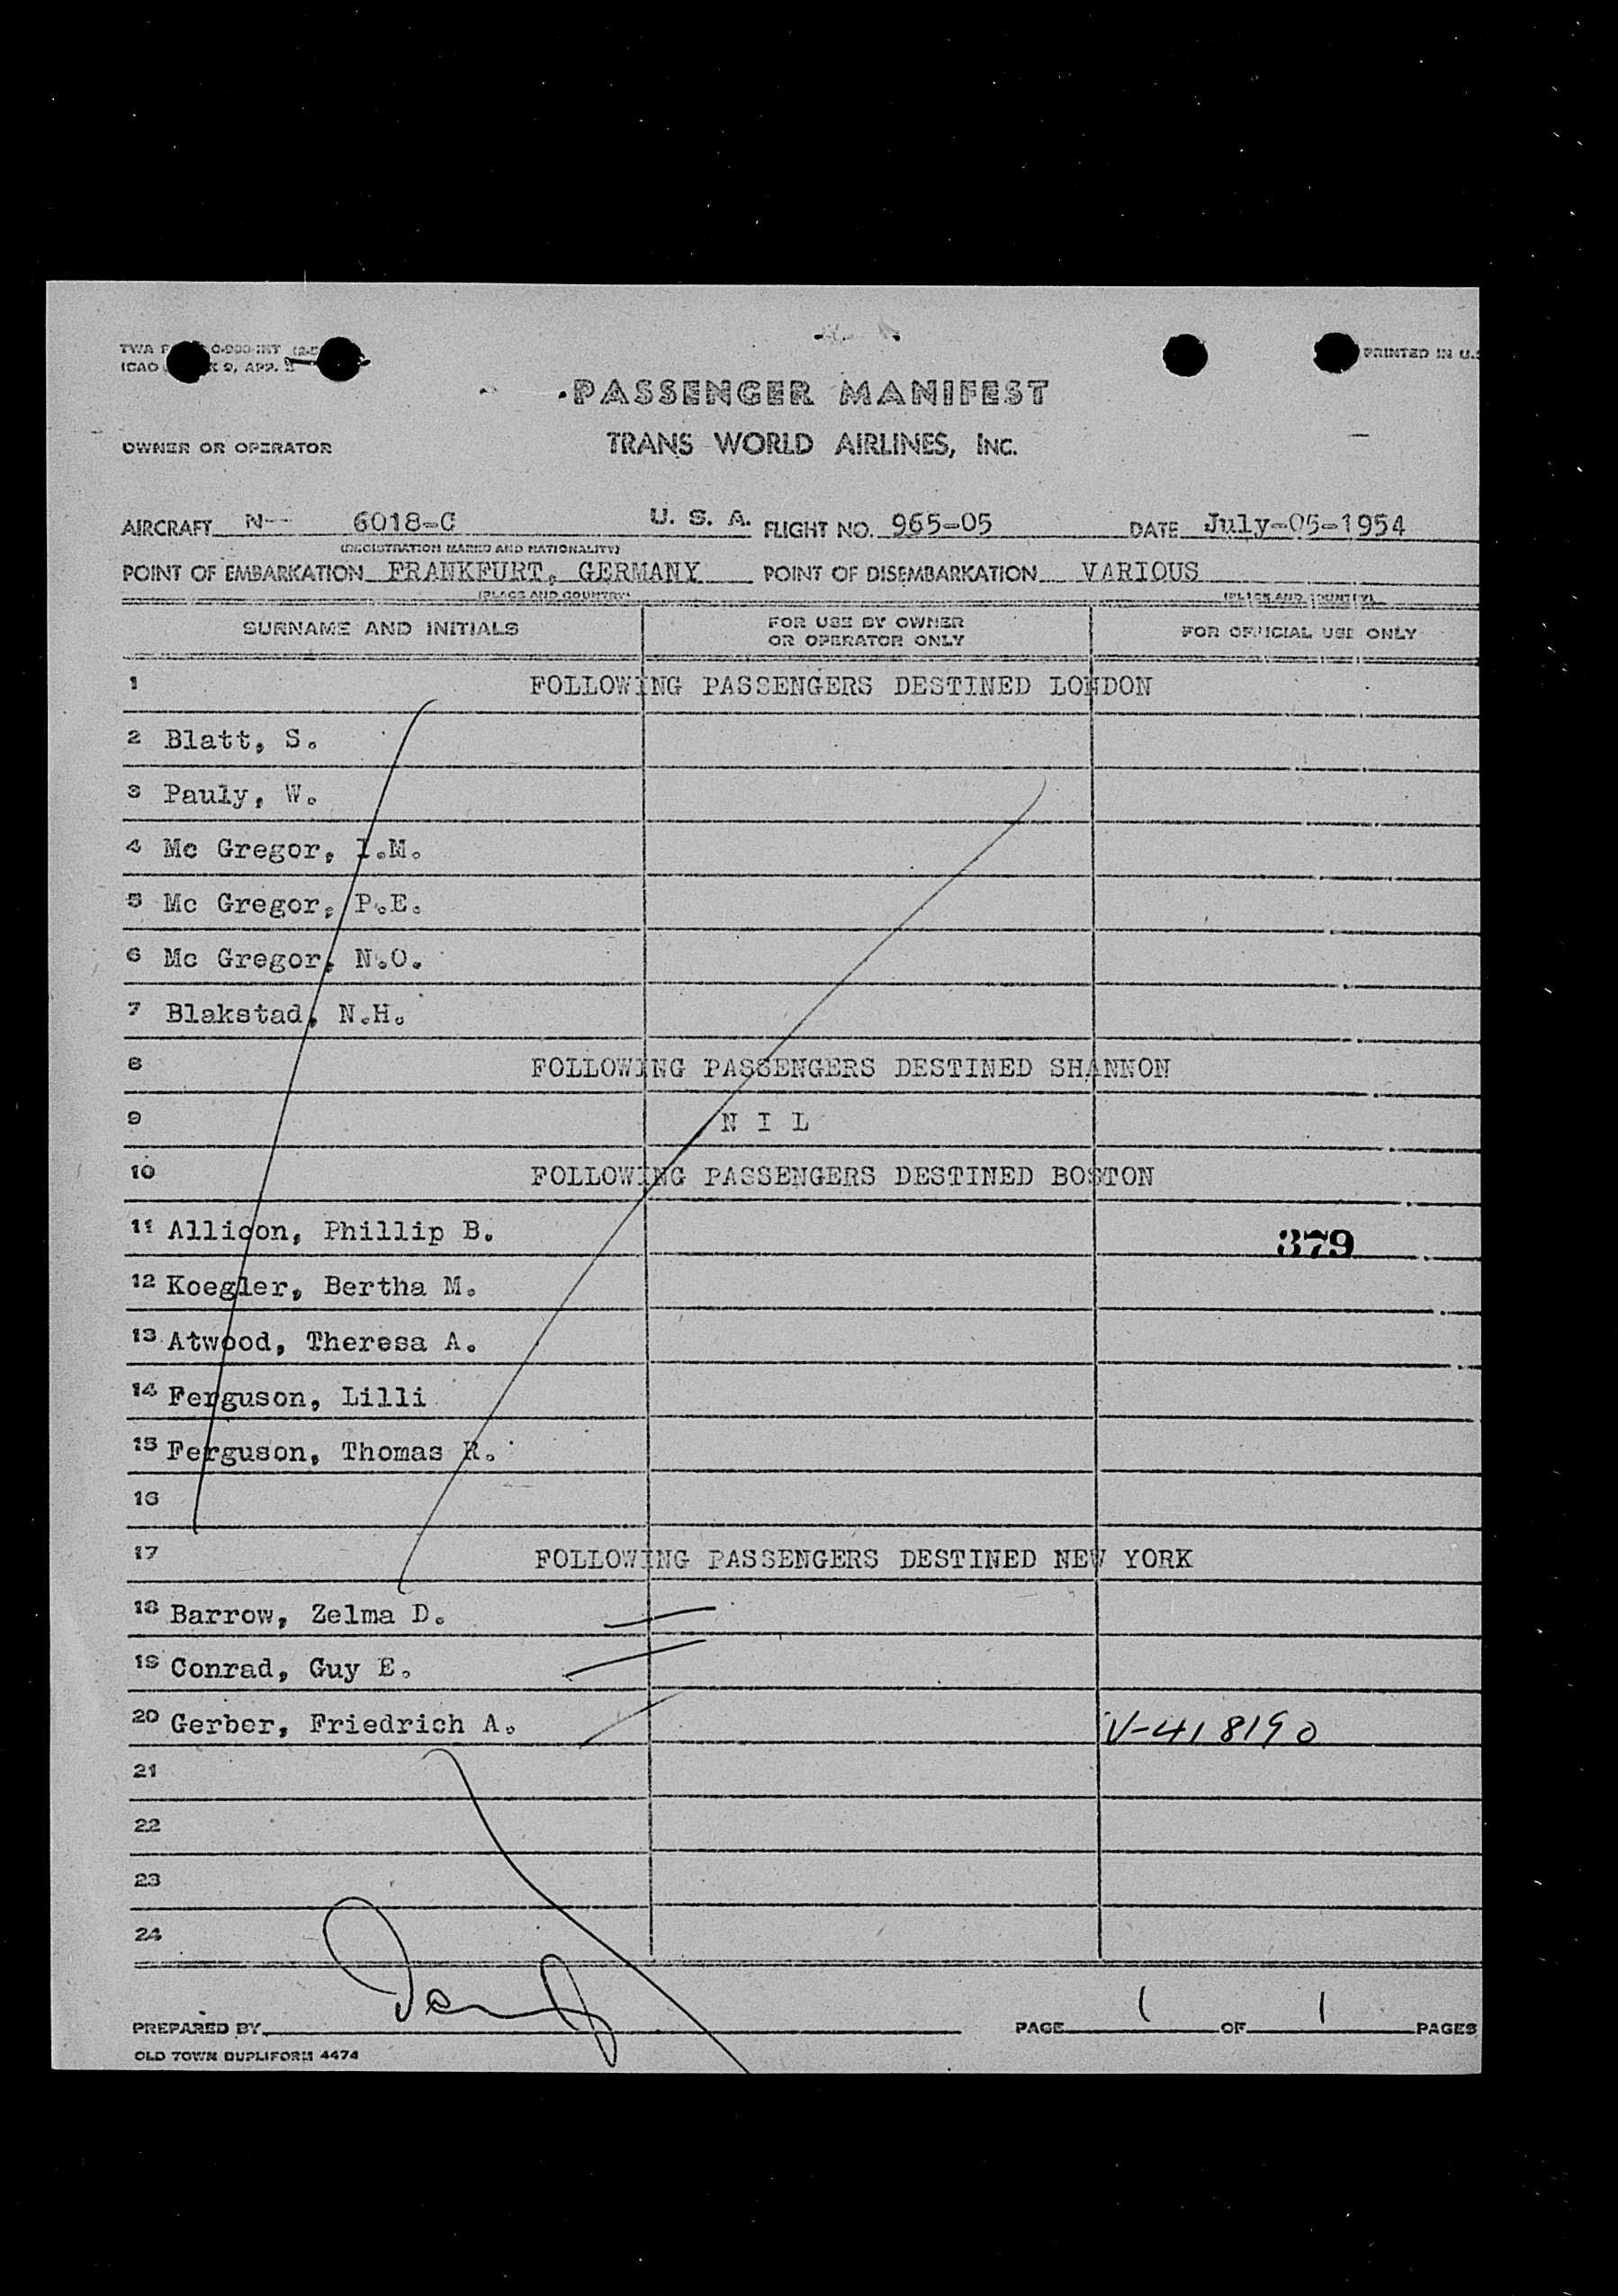 TWA 0-900-INT
ICAO 9, APP. 2
PRINTED IN U.S
PASSENGER MANIFEST
OWNER OR OPERATOR TRANS WORLD AIRLINES, INC.
AIRCRAFT N-- 6018-C U. S. A. FLIGHT NO. 965-05 DATE July-05-1954
(REGISTRATION MARKS AND NATIONALITY)
POINT OF EMBARKATION FRANKFURT, GERMANY POINT OF DISEMBARKATION VARIOUS
(PLACE AND COUNTRY) (PLACE AND COUNTRY)
SURNAME AND INITIALS FOR USE BY OWNER OR OPERATOR ONLY FOR OFFICIAL USE ONLY
1 FOLLOWING PASSENGERS DESTINED LONDON
2 Blatt, S.
3 Pauly, W.
4 Mc Gregor, I.M.
5 Mc Gregor, P.E.
6 Mc Gregor, N.O.
7 Blakstad, N.H.
8 FOLLOWING PASSENGERS DESTINED SHANNON
9 N I L
10 FOLLOWING PASSENGERS DESTINED BOSTON
11 Allicon, Phillip B. 379
12 Koegler, Bertha M.
13 Atwood, Theresa A.
14 Ferguson, Lilli
15 Ferguson, Thomas R.
16
17 FOLLOWING PASSENGERS DESTINED NEW YORK
18 Barrow, Zelma D.
19 Conrad, Guy E.
20 Gerber, Friedrich A. V-418190
21
22
23
24
PREPARED BY PAGE 1 OF 1 PAGES
OLD TOWN DUPLIFORM 4474